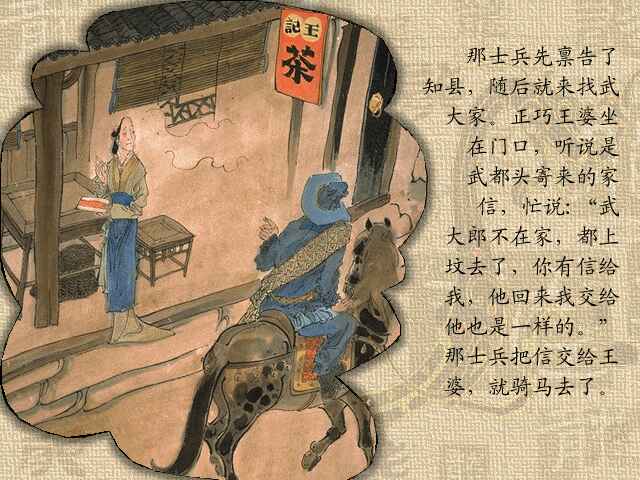 王记
茶
那士兵先禀告了
知县，随后就来找武
大家。正巧王婆坐
在门口，听说是
武都头寄来的家
信，忙说：“武
大郎不在家，都上
坟去了，你有信给
我，他回来我交给
他也是一样的。”
那士兵把信交给王
婆，就骑马去了。